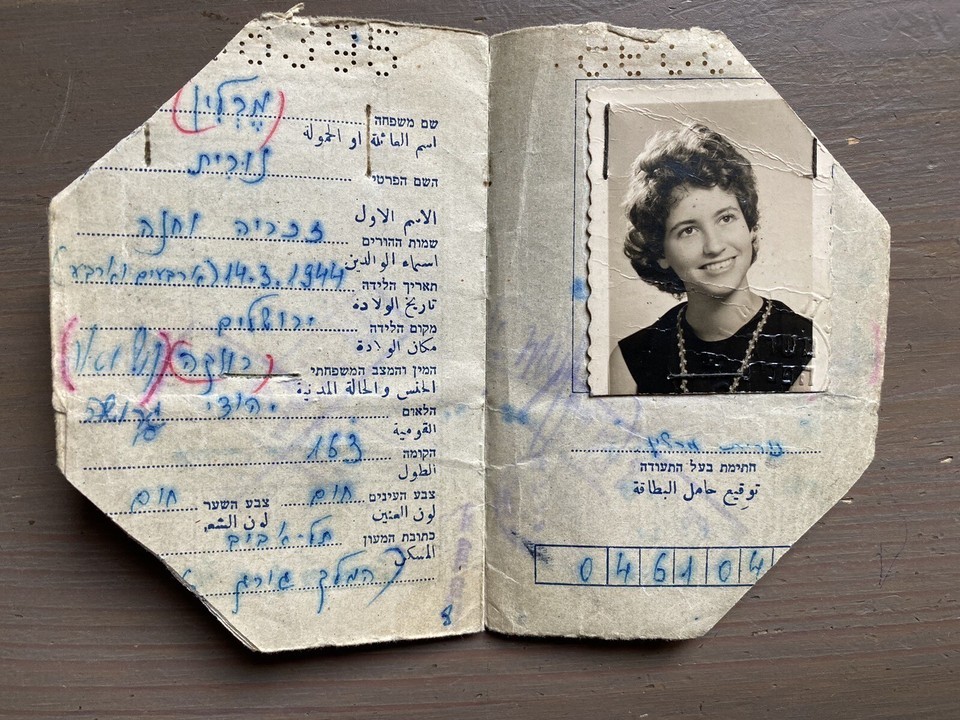 שם משפחה
اسم العائلة او الحمولة
נורית
השם הפרטי
الاسم الاول
זכריה וחנה
שמות ההורים
اسماء الوالدين
14.3.1944
תאריך הלידה
تاريخ الولادة
ירושלים
מקום הלידה
مكان الولادة
רווקה
המין והמצב המשפחתי
الجنس والحالة المدنية
יהודי
הלאום
القومية
163
הקומה
الطول
צבע העינים חום צבע השער חום
لون العينين لون الشعر
תל-אביב
כתובת המעון
المسكن
המלך גורג
8
נורית
חתימת בעל התעודה
توقيع حامل البطاقة
046104